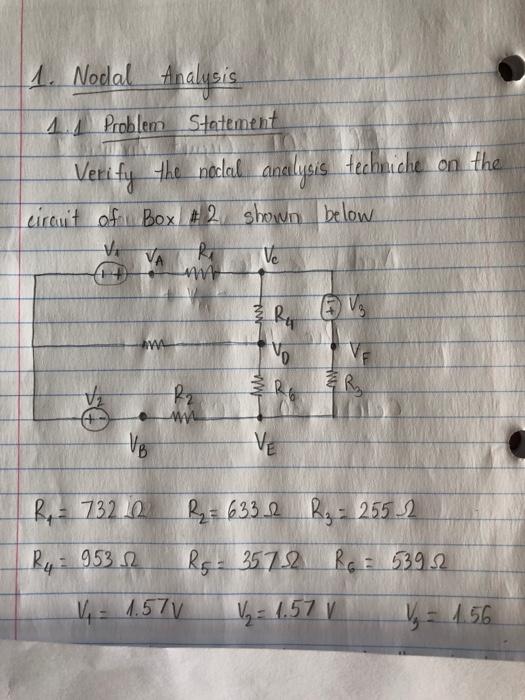 1. Nodal Analysis
1.1 Problem Statement
Verify the nodal analysis techniche on the
circuit of Box #2 shown below
V₁ VA R₁ Vc
- +
R₄ - + V₃
VD VF
V₂ R₂ R₆ R₃
+ -
VB VE
R₁ = 732 Ω R₂ = 633 Ω R₃ = 255 Ω
R₄ = 953 Ω R₅ = 357 Ω R₆ = 539 Ω
V₁ = 1.57V V₂ = 1.57 V V₃ = 1.56